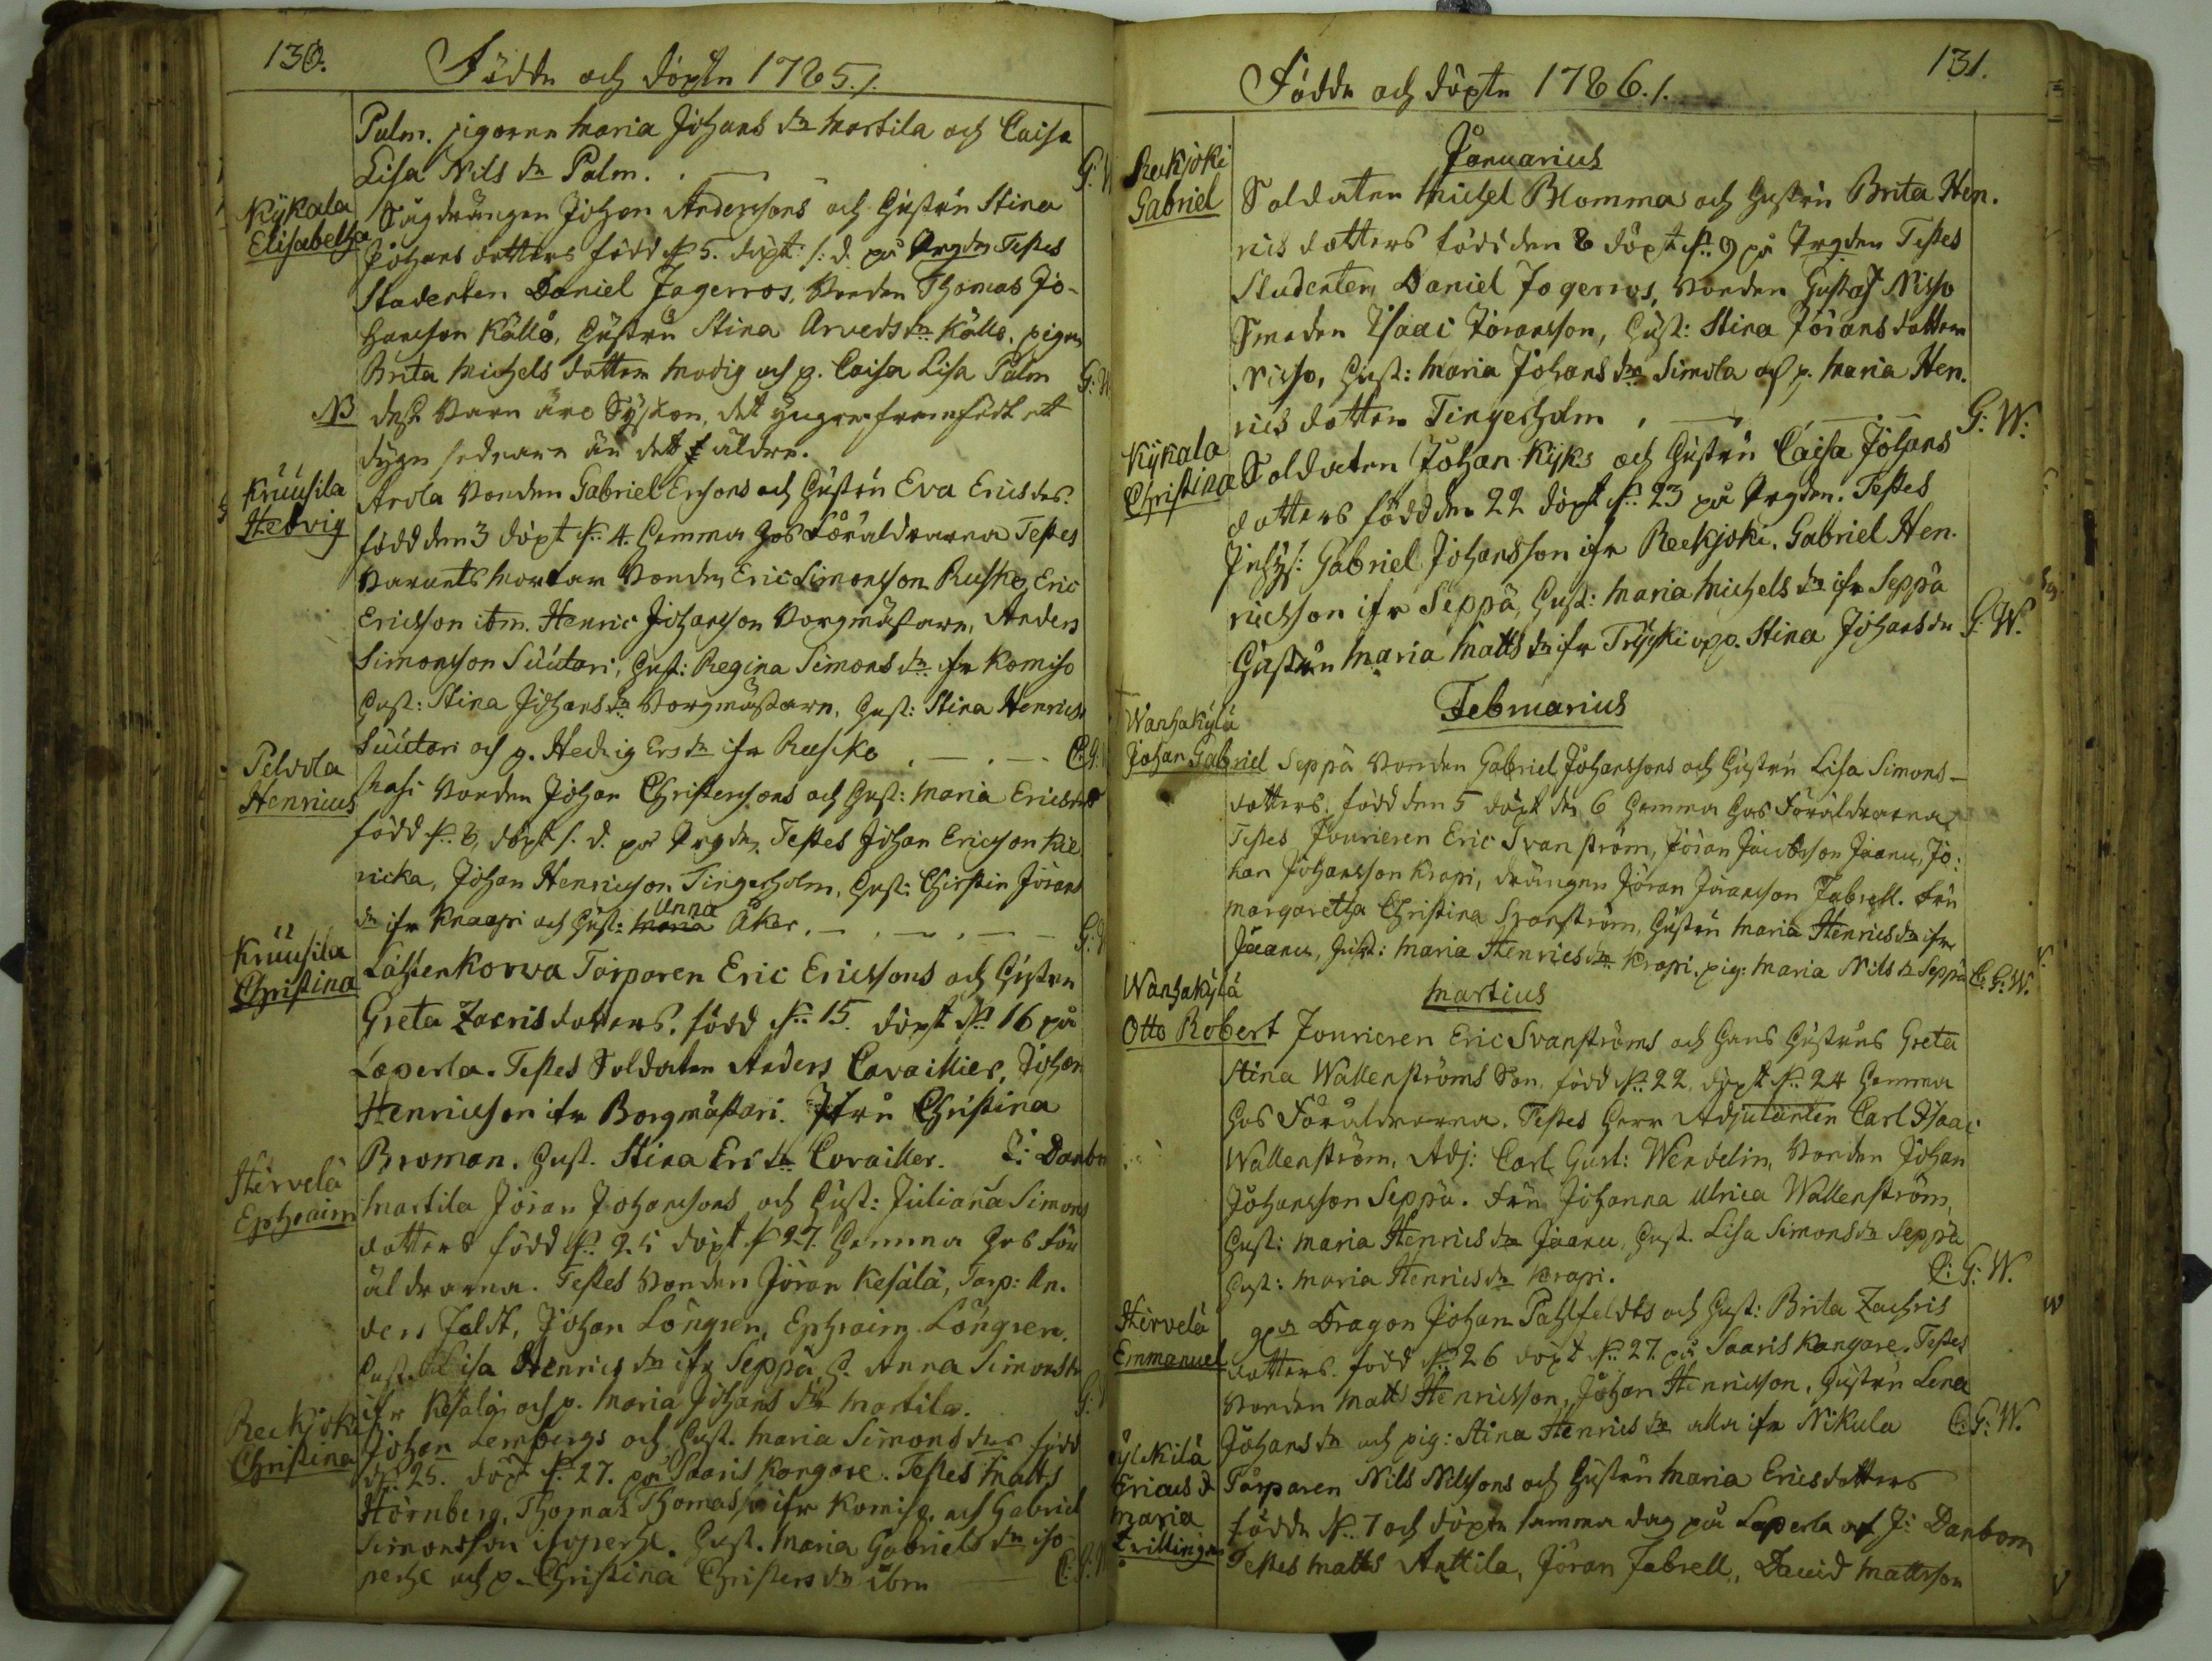 130.
Födde och döpte 1785./.
Palm. pigorne Maria Johans dr Martila och Caisa
Lisa Nils dr Palm. G: W
Kÿkala
Elisabetha
Johan Anderssons och Hustrun Stina
Johans dotters född d. 5. döpt s: d. på Prgdn Testes
Studenten Daniel Jagerros, Bonden Thomas Jo-
hansson Källo, Hustru Stina Arveds dr Källo, pigan
Brita Michels dotter Modig och p. Caisa Lisa Palm G: W
NB
desse Barn äro Syskon, det yngre framfödt ett
dygn sednare än det äldre.
Kruusila
Hedvig
Arola Bonden Gabriel Ersons och Hustru Eva Erics drs.
född den 3 döpt d. 4. hemma hos Föräldrarna Testes
Bonden Eric Simonsson Rusko, Eric
Ericsson ibm. Henric Johansson Borgmästare, Anders
Simonsson Suutari, Hust: Regina Simons dr ifr Komiso
Hust: Stina Johans dr Borgmästare, Hust: Stina Henrics
Suutari och p. Hedvig Ers dr ifr Rusko C: G:
Pelvola
Henricus
Bonden Johan Christerssons och Hust: Maria Erics drs
född d. 8, döpt s. d. på Prgdn. Testes Johan Ericsson
Johan Henricsson Tingerholm, Hust: Christin Jörans
dr ifr Knaapi och Hust: Anna Åker. G: W
Kruusila
Christina
Lähtenkorwa Torparen Eric Ericssons och Hustru
Greta Zacris dotters, född d. 15. döpt d. 16 på
Laperla. Testes Soldaten Anders Cavaillier, Johan
Henricsson ifr Borgmästari. Jfru Christina
Broman. Hust. Stina Ers dr Cavailler. J: Danbom
Hirvelä
Ephraim
Martila Jöran Johanssons och Hust: Juliana Simons
dotters född d. 25 döpt d 27. hemma hos För
äldrarna. Testes Bonden Jöran Kesälä, Torp: An.
ders Faldt, Johan Löngren, Ephraim Löngren.
Hust. Lisa Henrics dr ifr Seppä, H. Anna Simons dr
ifr Kesälä och p. Maria Johans dr Martila. G: W
Reekjoki
Christina
Johan Lembergs och Hust. Maria Simons drs född
d. 25. döpt d. 27. på Saaris Kangare. Testes Matts
Hörnberg, Thomas Thomasson ifr Komiso, och Gabriel
Simonsson isoperhe. Hust. Maria Gabriels dr iso
perhe och p. Christina Christers dr ibm C: G: W
131.
Födde och döpte 1786./.
Januarius
Reekjoki
Gabriel
Soldaten Michel Blommas och Hustru Brita Hen.
rics dotters född den 8 döpt d. 9 på Prgden Testes
Studenten Daniel Jagerros, Bonden Gustaf Nisso
Smeden Isaac Jöransson, Hust: Stina Jörans dotter
Nisso, Hust: Maria Johans dr Simola och p. Maria Hen.
rics dotter Tingerholm. G: W:
Kÿkala
Christina
Soldaten Johan Kÿks och Hustru Caisa Johans
dotters född den 22 döpt d. 23 på Prgden. Testes
Gabriel Johansson ifr Reekjoki, Gabriel Hen.
ricsson ifr Seppä, Hust: Maria Michels dr ifr Seppä
Hustrun Maria Matts dr ifr Tryski och p. Stina Johans dr G: W.
Februarius
Wanhakÿlä
Johan Gabriel
Seppä Bonden Gabriel Johanssons och Hustru Lisa Simons-
dotters. född den 5 döpt den 6 hemma hos Föräldrarna
Testes Fourieren Eric Svanström, Jöran Jacobsson Jaanu, Jo:
han Johansson Krapi, drängen Jöran Jöransson Fabrell. Fru
Margaretha Christina Svanström, Hustru Maria Henrics dr ifr
Jaanu, Hust: Maria Henrics dr Krapi. pig: Maria Nils dr Seppä C: G: W.
Martius
Wanhakÿlä
Otto Robert
Fourieren Eric Svanströms och hans Hustrus Greta
Stina Wallenströms Son, född d. 22, döpt d. 24 hemma
hos Föräldrarna. Testes Herr Adjutanten Carl Isaac
Wallenström, Adj: Carl Gust: Wendelin, Bonden Johan
Johansson Seppä. Fru Johanna Ulrica Wallenström,
Hust: Maria Henrics dr Jaanu, Hust. Lisa Simons dr Seppä
Hust: Maria Henrics dr Krapi. C: G: W.
Hirvelä
Emmanuel
Dragon Johan Pahlfeldts och Hust: Brita Zachris
dotters. född d. 26 döpt d. 27. på Saaris Kangare. Testes
Bonden Matts Henricsson, Johan Henricsson, Hustru Lena
Johans dr och pig: Stina Henrics dr alla ifr Nikula C: G: W.
Ericus &
Maria
tvillingar
Torparen Nils Nilssons och Hustru Maria Ericsdotters
födde d. 7 och döpte samma dag på Laperla af J: Danbom
Testes Matts Anttila, Jöran Fabrell, David Mattsson